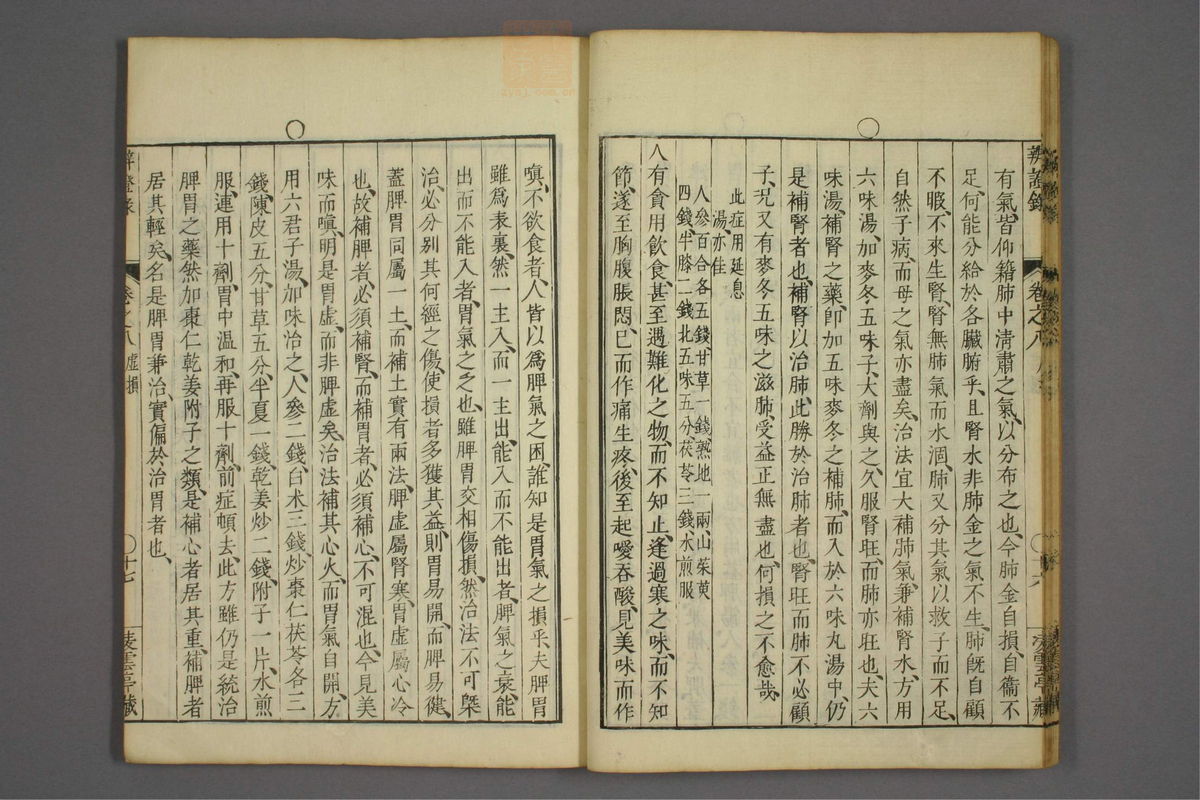 有氣皆仰籍肺中淸肅之氣、以分布之也、今肺金自損、自衞不
足、何能分給於各臟腑乎、且腎水非肺金之氣不生、肺旣自顧
不暇、不來生腎、腎無肺氣而水涸、肺又分其氣以救子而不足、
自然子病、而母之氣亦盡矣、治法宜大補肺氣、兼補腎水、方用
六味湯、加麥冬五味子、大劑與之、久服腎旺、而肺亦旺也、夫六
味湯、補腎之藥、卽加五味麥冬之補肺、而入於六味丸湯中、仍
是補腎者也、補腎以治肺、此勝於治肺者也、腎旺而肺不必顧
子、况又有麥冬五味之滋肺、受益正無盡也、何損之不愈哉、
此症用延息
湯、亦佳
人參百合各五錢、甘草一錢、熟地一兩、山茱萸
四錢、牛膝二錢、北五味五分、茯苓三錢、水煎服
人有貪用飲食、甚至遇難化之物、而不知止、逢過寒之味、而不知
節、遂至胸腹脹悶、已而作痛生疼、後至起噯吞酸、見美味而作
辨證錄
卷之八
凌雲亭藏
嗔、不欲食者、人皆以爲脾氣之困、誰知是胃氣之損乎、夫脾胃
雖爲表裏、然一主入、而一主出、能入而不能出者、脾氣之衰、能
出而不能入者、胃氣之乏也、雖脾胃交相傷損、然治法不可槩
治、必分别其何經之傷、使損者多獲其益、則胃易開、而脾易健、
蓋脾胃同屬一土、而補土實有兩法、脾虛屬腎寒、胃虛屬心冷
也、故補脾者、必須補腎、而補胃者、必須補心、不可混也、今見美
味而嗔、明是胃虛、而非脾虛矣、治法補其心火、而胃氣自開、方
用六君子湯、加味治之、人參二錢、白朮三錢、炒棗仁茯苓各三
錢、陳皮五分、甘草五分、半夏一錢、乾姜炒二錢、附子一片、水煎
服、連用十劑、胃中温和、再服十劑、前症頓去、此方雖仍是統治
脾胃之藥、然加棗仁乾姜附子之類、是補心者居其重、補脾者
居其輕矣、名是脾胃兼治、實偏於治胃者也、
辨證錄
卷之八 虛損
十七
凌雲亭藏